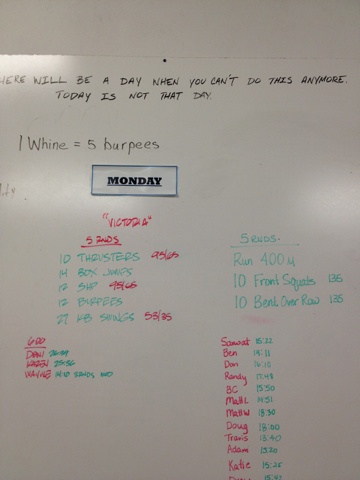 HERE WILL BE A DAY WHEN YOU CAN'T DO THIS ANYMORE.
TODAY IS NOT THAT DAY.
1 Whine = 5 burpees
MONDAY
"VICTORIA"
5 RNDS
10 THRUSTERS 95/65
14 BOX JUMPS
12 SHP 95/65
12 BURPEES
27 KB SWINGS 53/35
600
DANI
KAREN
WAYNE
5 RNDS.
Run 400M
10 Front Squats 135
10 Bent Over Row 135
Sarwat 15:22
Ben 14:11
Don 16:10
Randy 17:48
BC 15:50
Matt L 14:51
Matt W 18:30
Doug 18:00
Travis 13:40
Adam 15:20
Katie 15:25